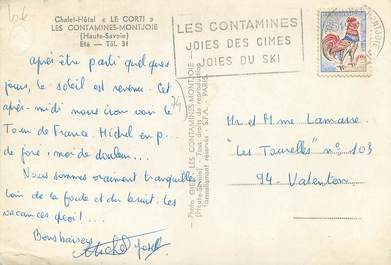 Chalet-Hôtel « LE CORTI »
LES CONTAMINES-MONTJOIE
(Haute-Savoie)
Été — Tél. 31
LES CONTAMINES
JOIES DES CIMES
JOIES DU SKI
après être parti quelques
jours, le soleil est revenu. Cet
après-midi nous irons voir le
Tour de France. Michel en
de joie, moi de douleur...
Nous sommes vraiment tranquilles
loin de la foule et du bruit. les
vacances quoi! ...
Bons baisers
Michel
Photo GIE LES CONTAMINES-MONTJOIE
(Haute-Savoie) - Tous droits de reproduction
formellement réservés - S.P.A. - PARIS
(74)
Mr et Mme Lamasse
"Les Tourelles" n° 103
94 - Valenton